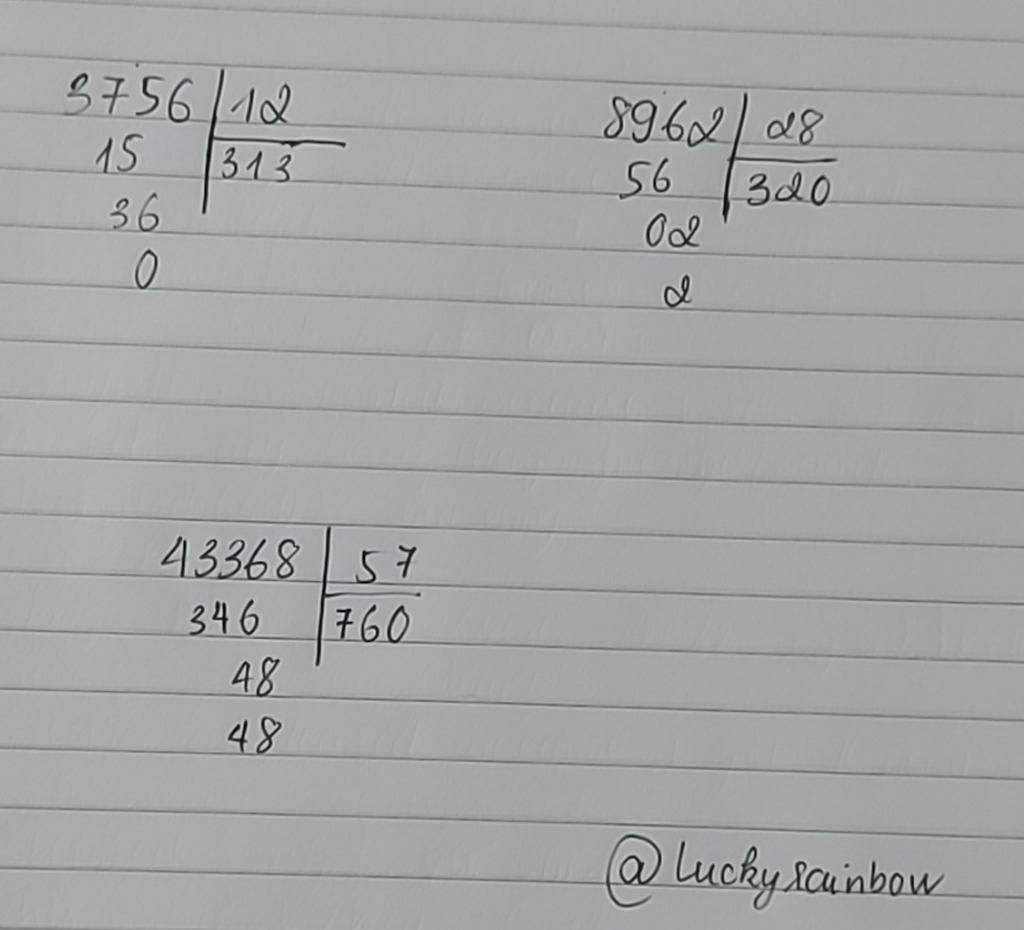 3756 12
15 313
36
0
8962 28
56 320
02
2
43368 57
346 760
48
48
@luckyrainbow